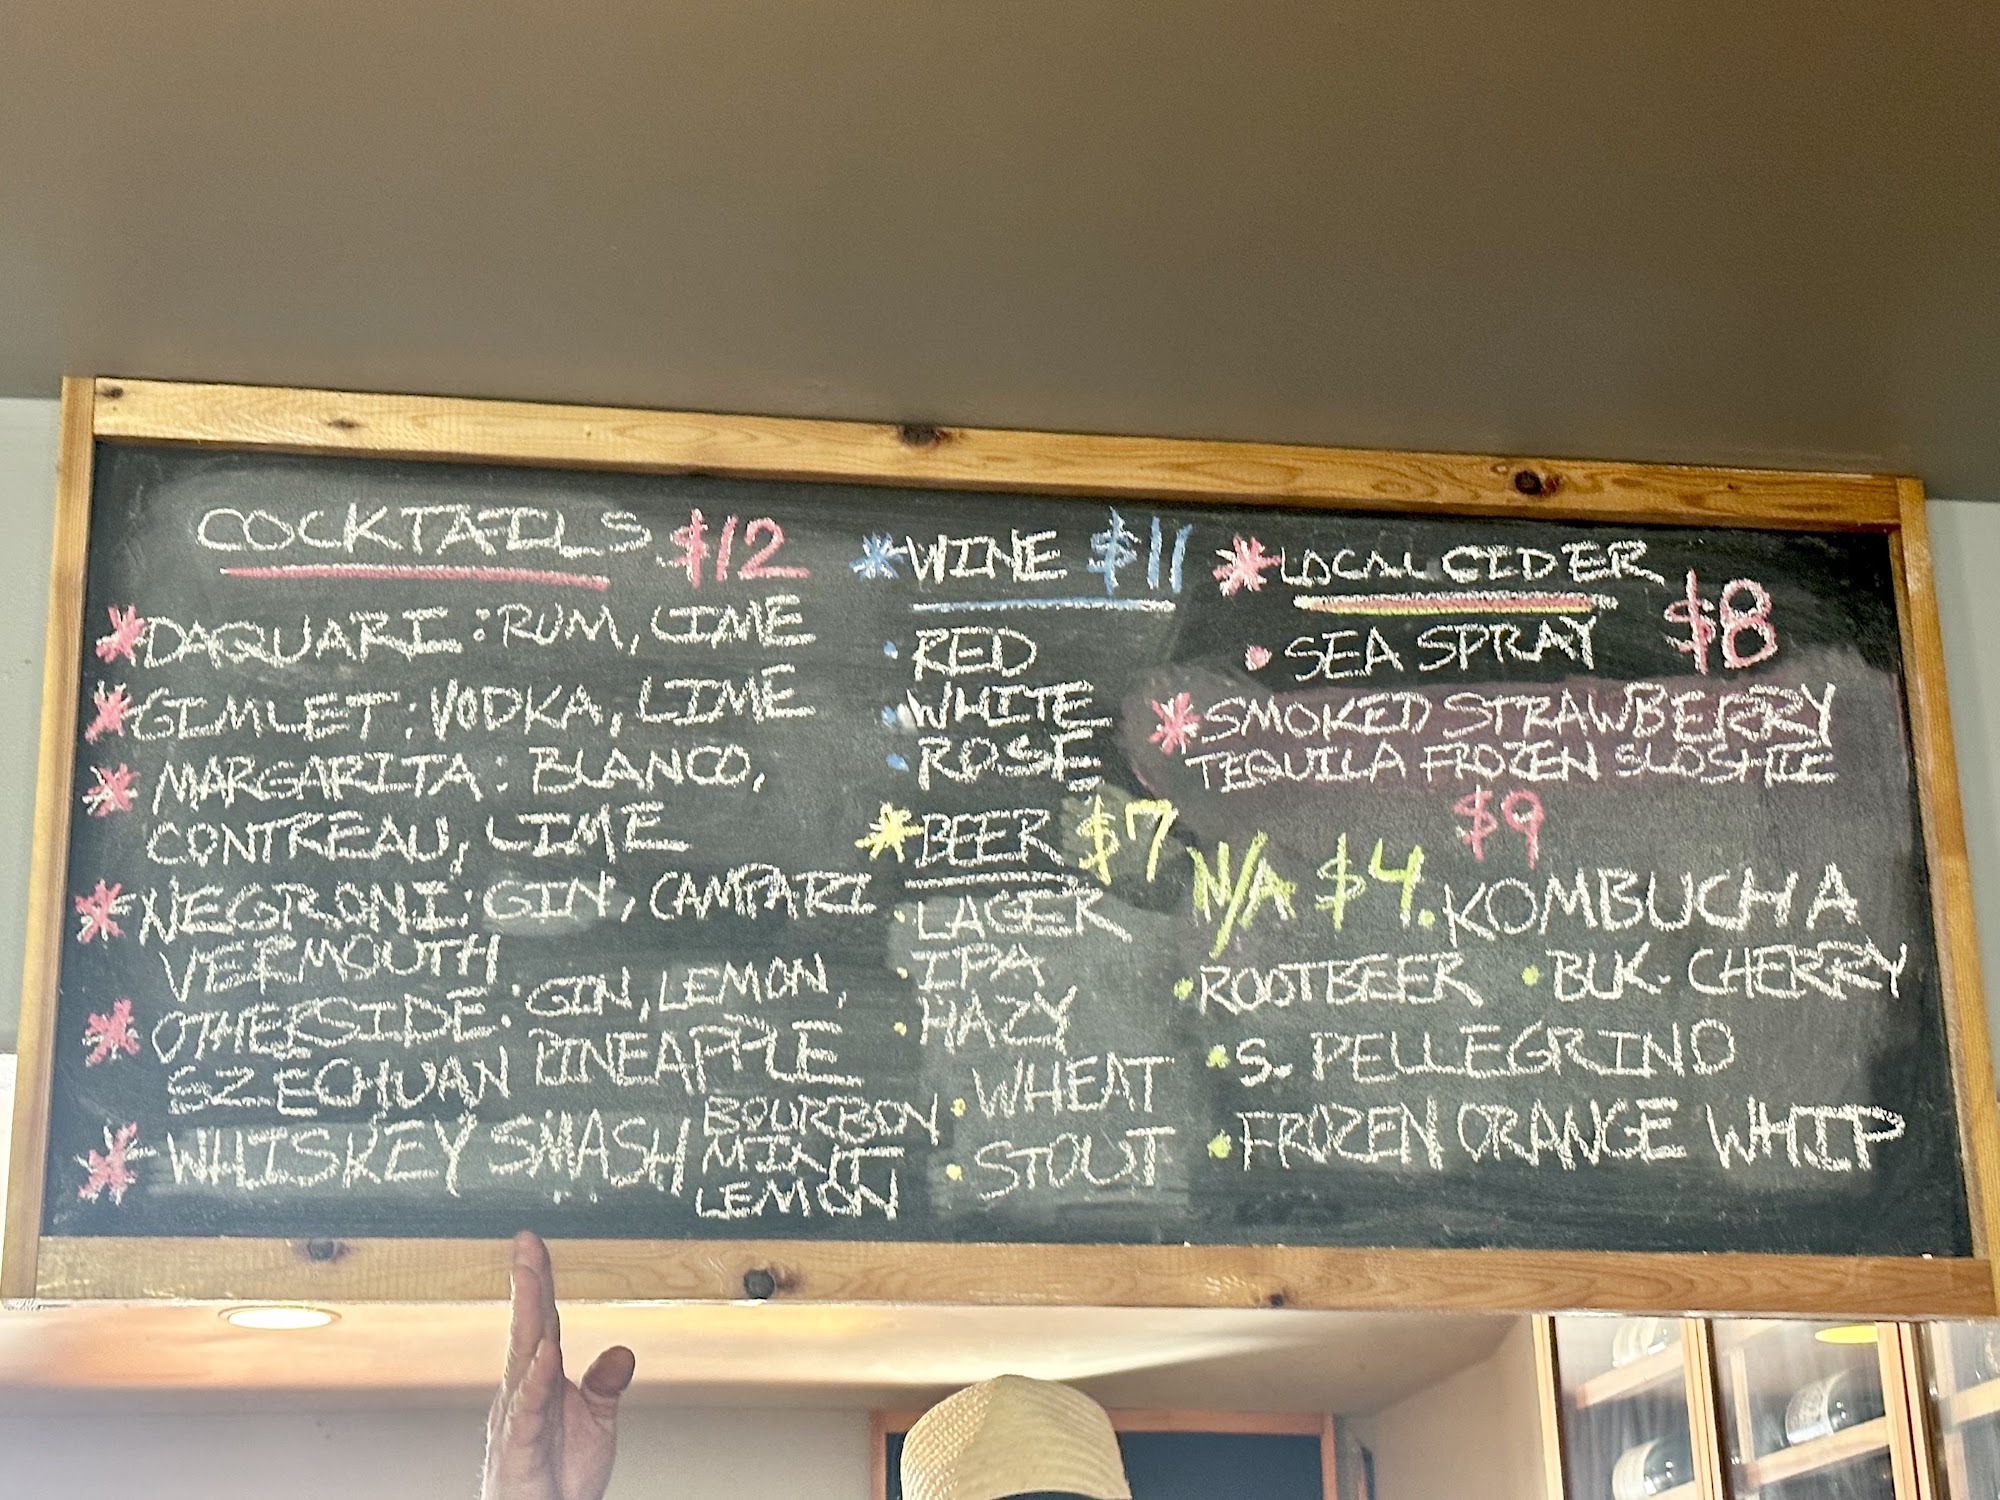 COCKTAILS $12
DAQUARI: RUM, LIME
GIMLET: VODKA, LIME
MARGARITA: BLANCO,
CONTREAU, LIME
NEGRONI: GIN, CAMPARI
VERMOUTH
OTHERSIDE: GIN, LEMON,
SZECHUAN PINEAPPLE
WHISKEY SMASH BOURBON
MINT
LEMON
WINE $11
RED
WHITE
ROSE
BEER $7
LAGER
IPA
HAZY
WHEAT
STOUT
LOCAL CIDER
$8
SEA SPRAY
SMOKED STRAWBERRY
TEQUILA FROZEN SLOSHIE
$9
N/A $4 • KOMBUCHA
• ROOTBEER • BLK. CHERRY
• S. PELLEGRINO
• FROZEN ORANGE WHIP